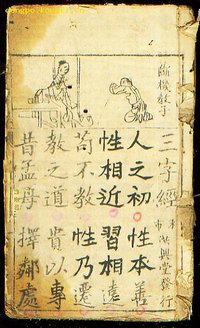 斷機教子
三字經
本市洪興堂發行
人之初 性本善
性相近 習相遠
苟不教 性乃遷
教之道 貴以專
昔孟母 擇鄰處